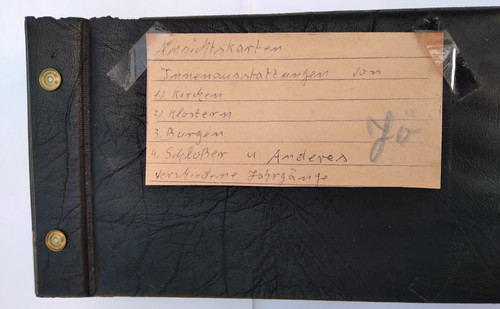 Ansichtskarten
Innenausstattungen von
1) Kirchen
2) Klöstern
3. Burgen
4. Schloßer u Anderes
verschiedene Jahrgänge